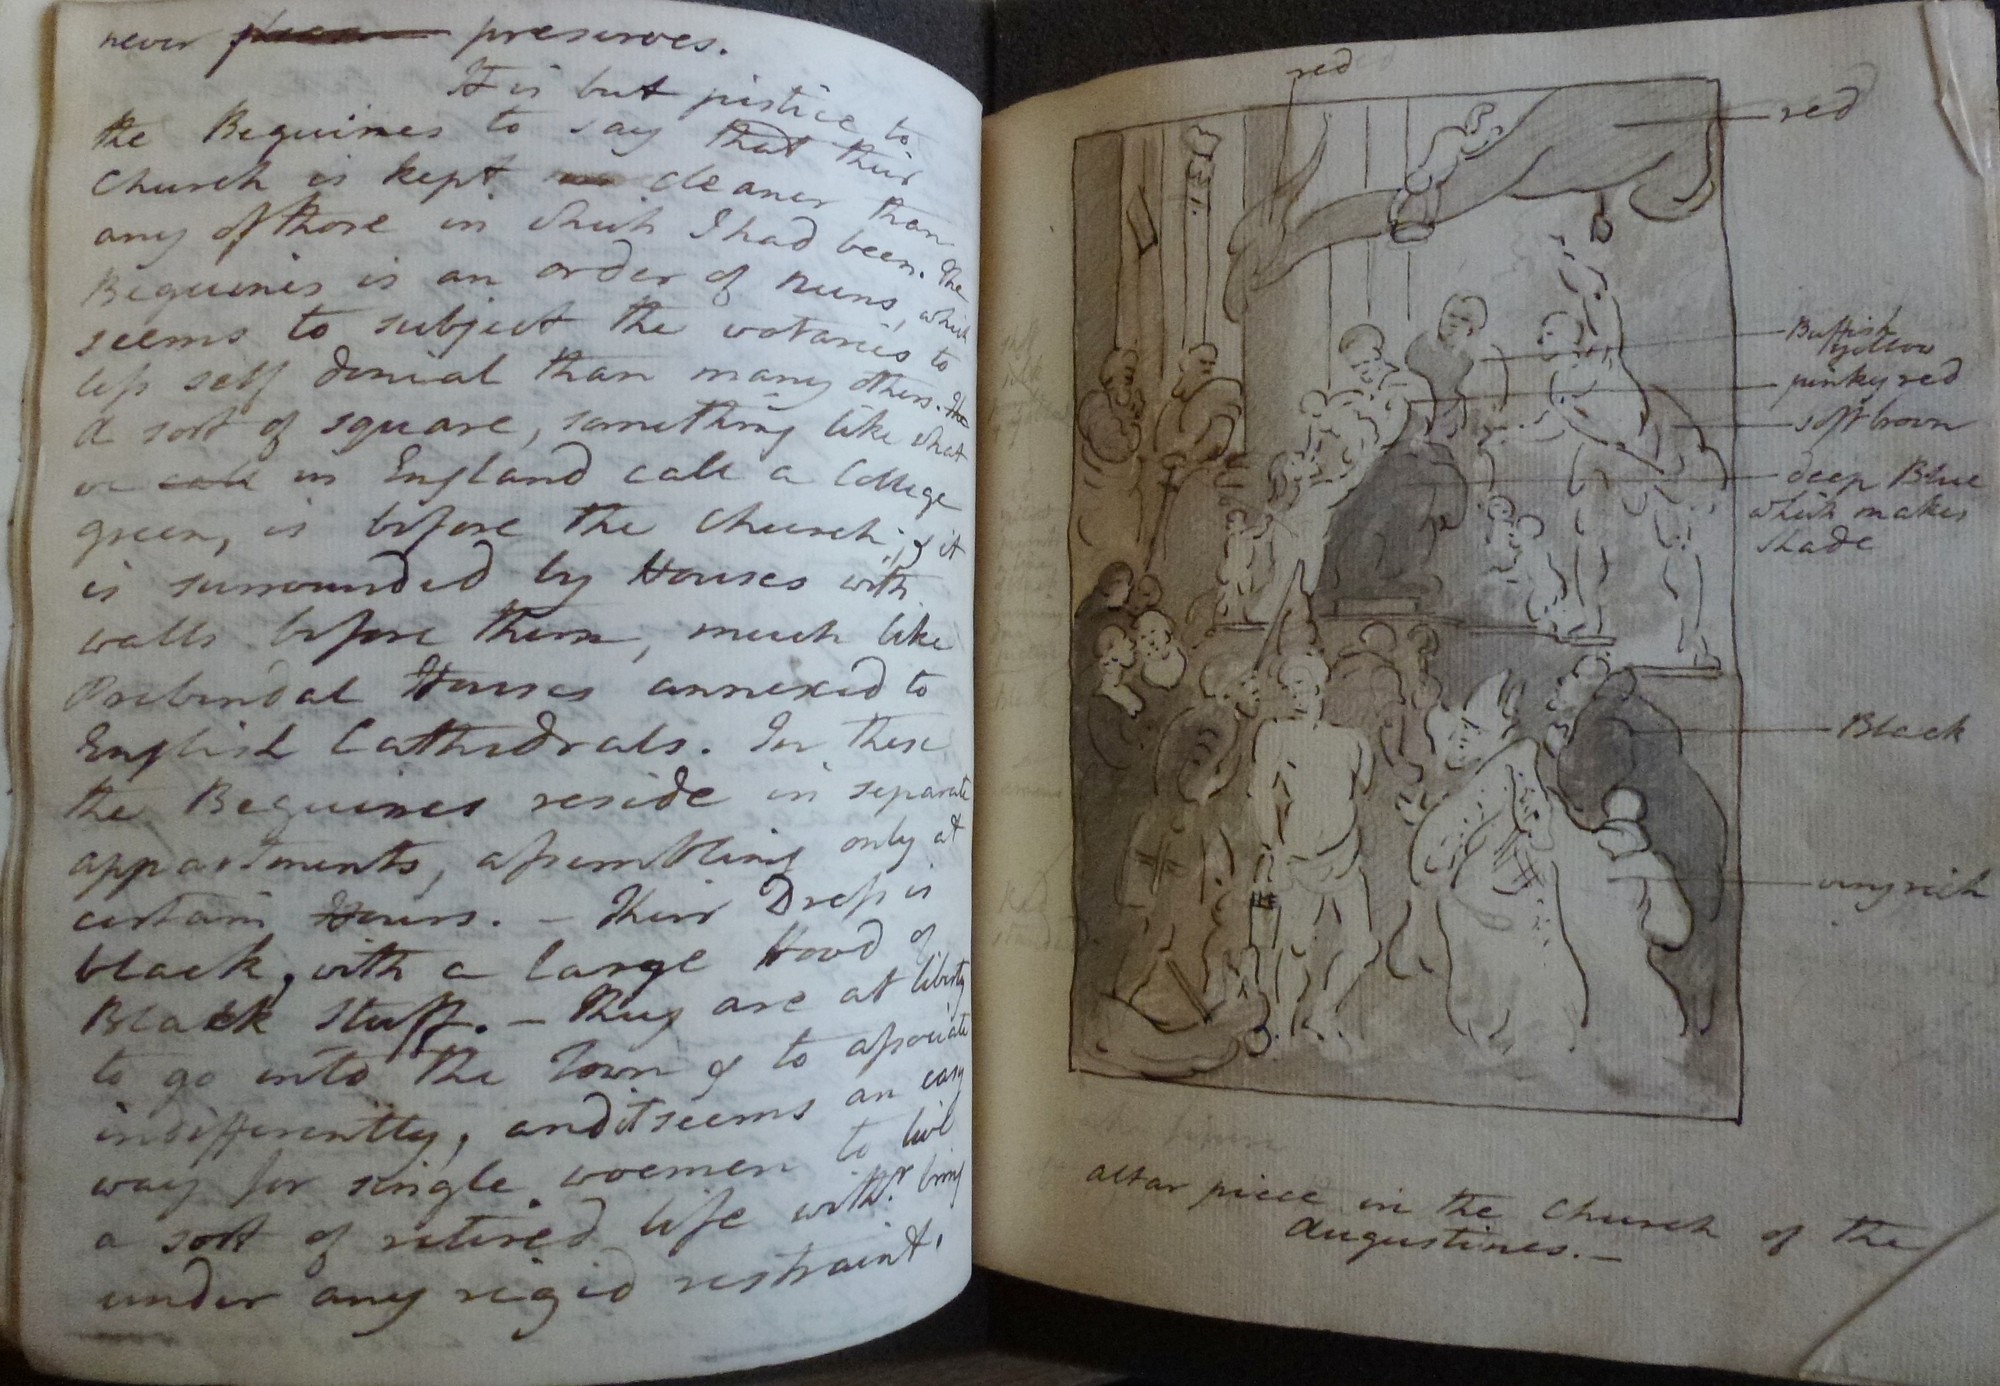 never preserves.
It is but justice to
the Beguines to say that their
Church is kept cleaner than
any of those in which I had been. The
Beguines is an order of Nuns, which
seems to subject the votaries to
less self denial than many others.
A sort of square, something like what
we call in England call a College
green, is before the Church; & it
is surrounded by Houses with
walls before them, much like
Prebendal Houses annexed to
English Cathedrals. In these
the Beguines reside in separate
appartments, assembling only at
certain Hours. – Their Dress is
black, with a large Hood of
Black Stuff. – They are at liberty
to go into the Town & to associate
indifferently, and it seems an easy
way for single woemen to live
a sort of retired life witht. being
under any rigid restraint.
red
red
Buffish
yellow
pinky red
soft brown
deep Blue
which makes
Shade
Black
very rich
altar piece in the Church of the
Augustines. –